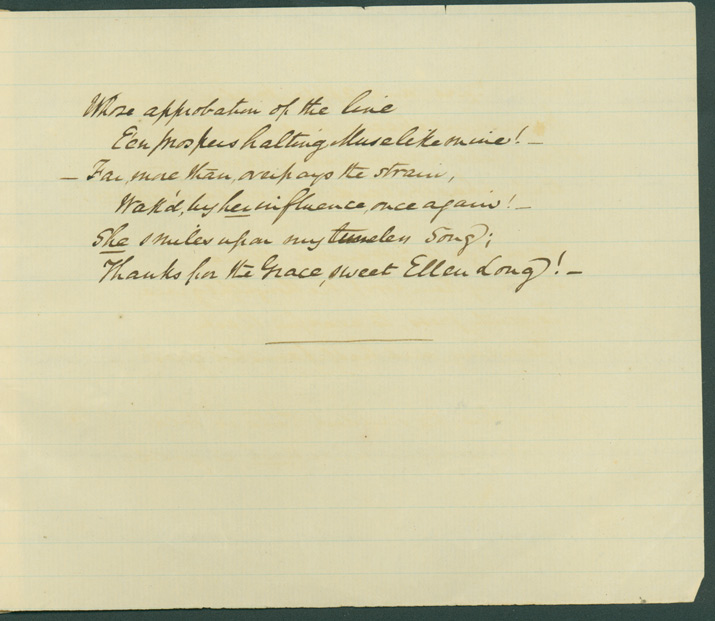 Whose approbation of the line
E'en prospers halting Muse like mine! –
– Far, more than, overpays the strain,
Wak'd, by her influence, once again! –
She smiles upon my tuneless Song;
Thanks for the Grace, sweet Ellen Long! –